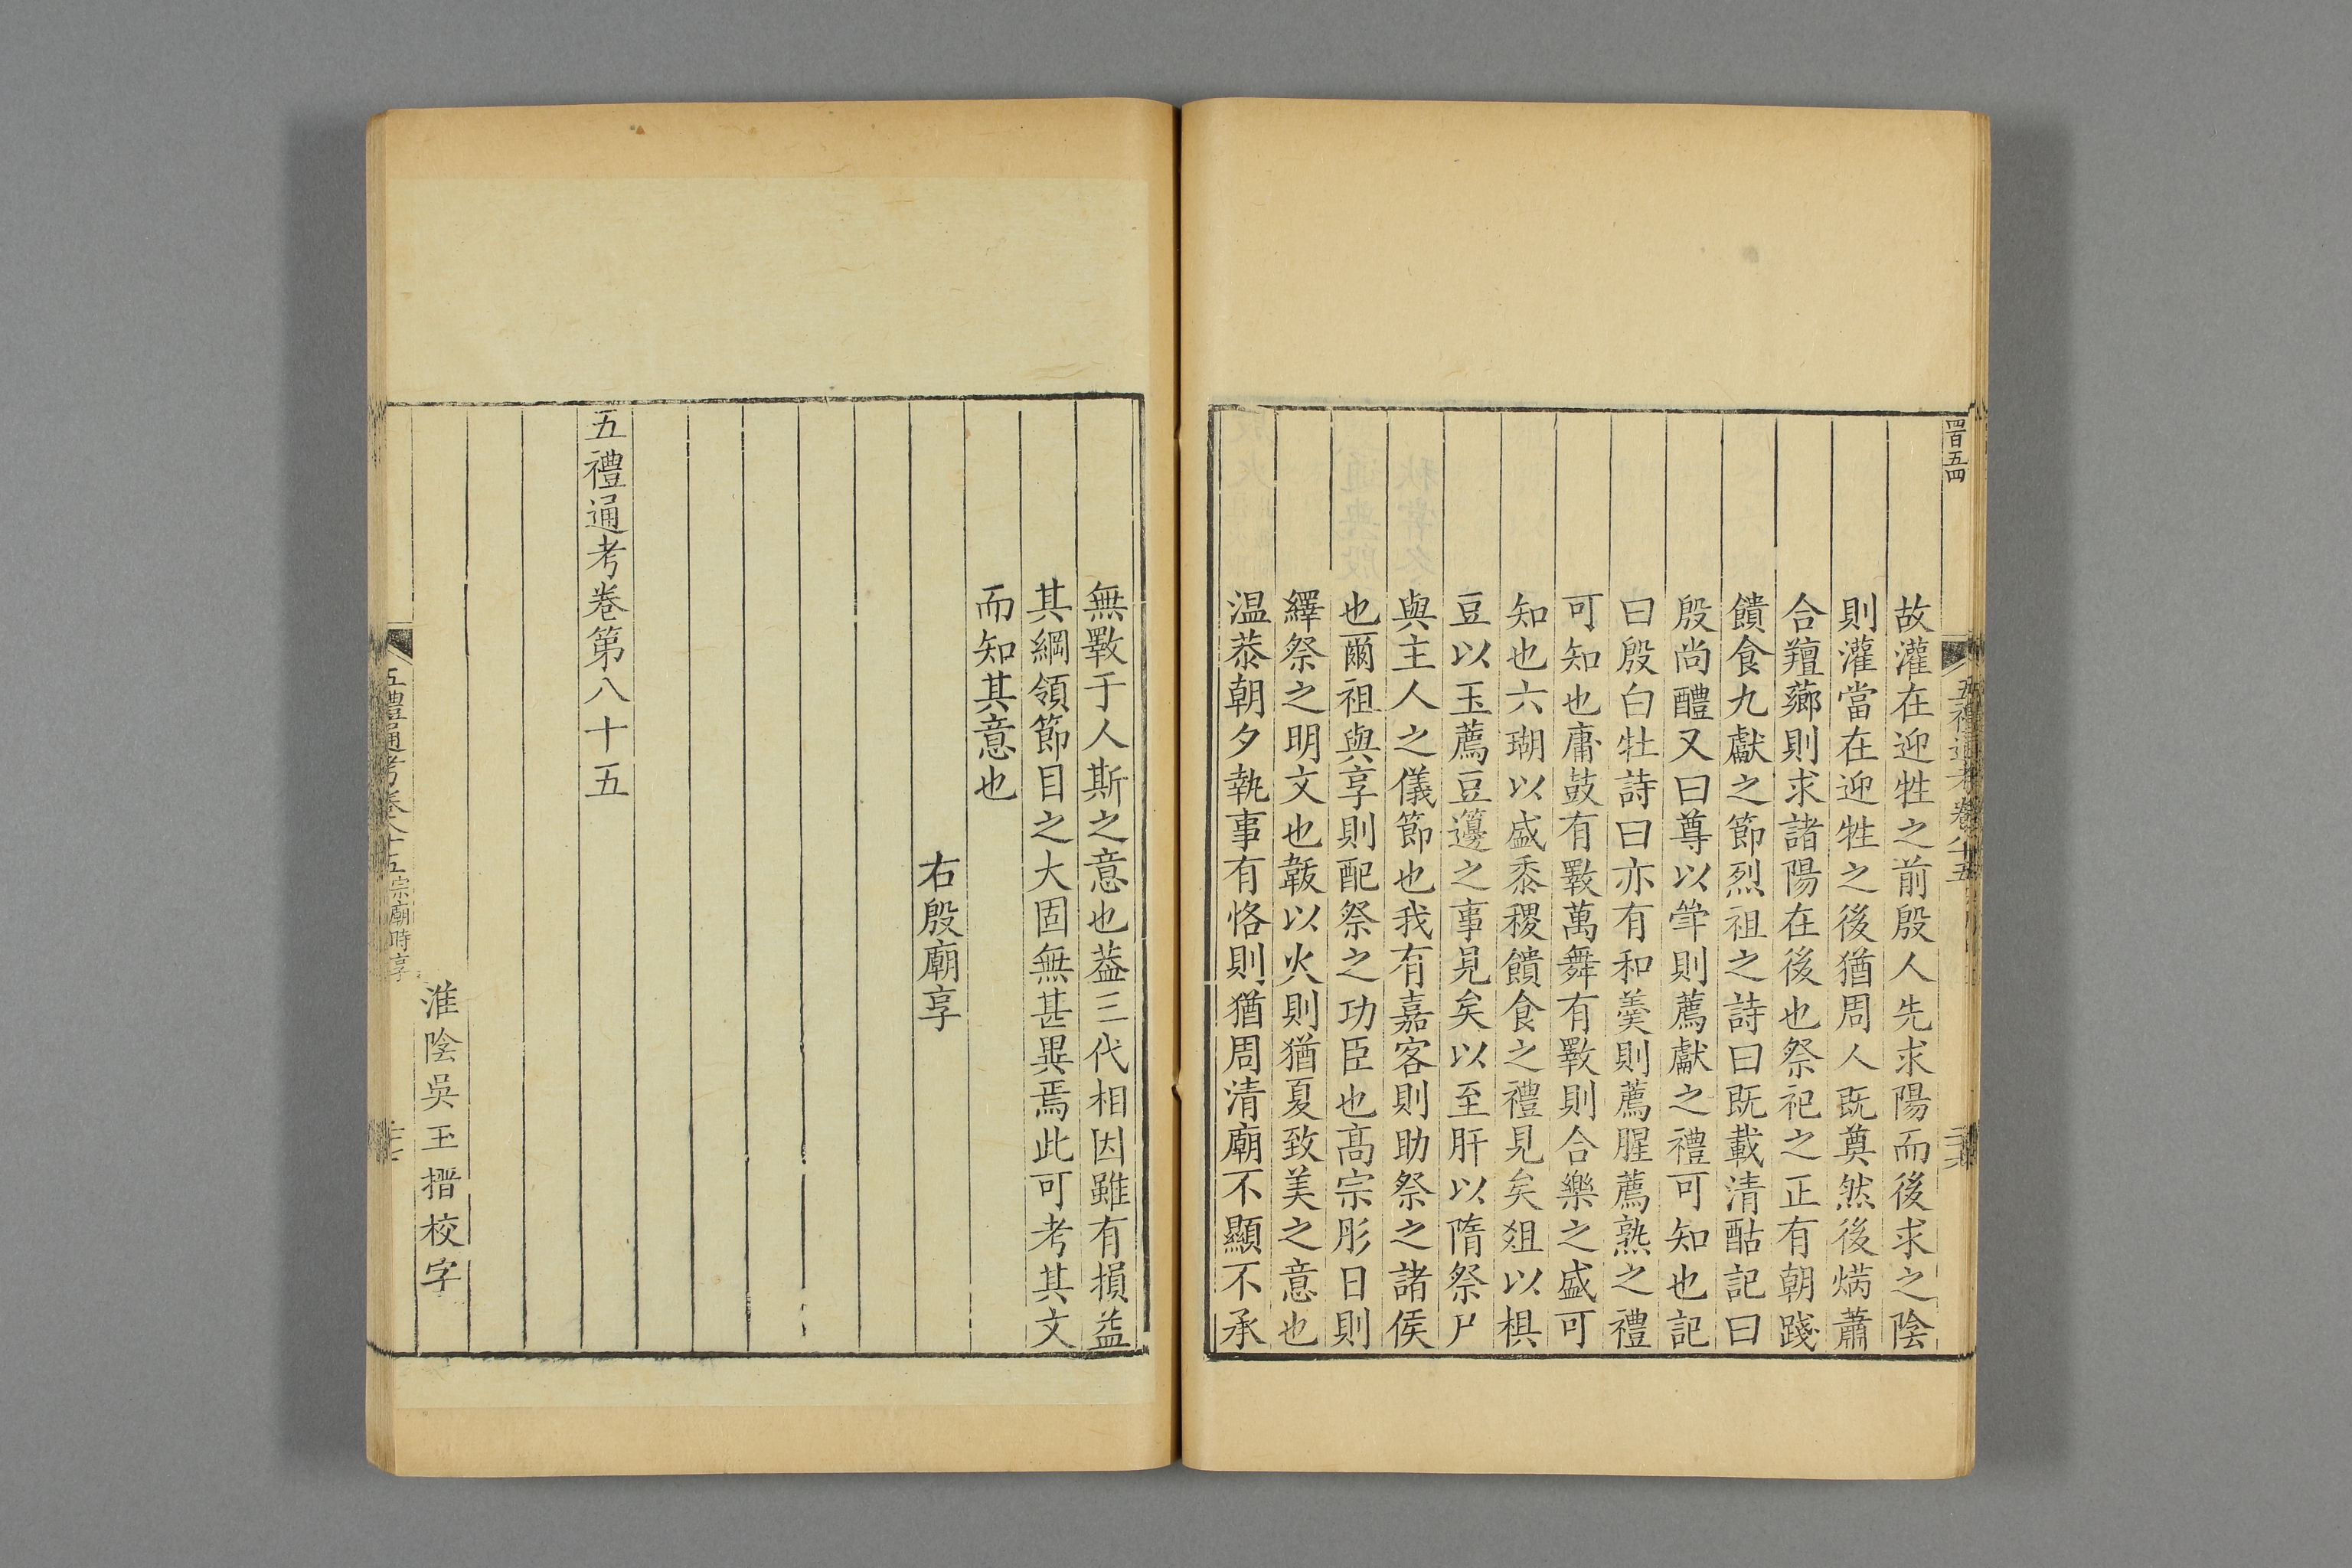 四百五四
五禮通考卷八十五
故灌在迎牲之前殷人先求陽而後求之陰
則灌當在迎牲之後猶周人既奠然後焫蕭
合羶薌則求諸陽在後也祭祀之正有朝踐
饋食九獻之節烈祖之詩曰既載清酤記曰
殷尚醴又曰尊以斝則薦獻之禮可知也記
曰殷白牡詩曰亦有和羹則薦腥薦熟之禮
可知也庸鼓有斁萬舞有斁則合樂之盛可
知也六瑚以盛黍稷饋食之禮見矣俎以椇
豆以玉薦豆籩之事見矣以至肝以隋祭尸
與主人之儀節也我有嘉客則助祭之諸侯
也爾祖與享則配祭之功臣也高宗肜日則
繹祭之明文也韍以火則猶夏致美之意也
温恭朝夕執事有恪則猶周清廟不顯不承
無斁于人斯之意也蓋三代相因雖有損益
其綱領節目之大固無甚異焉此可考其文
而知其意也
右殷廟享
五禮通考卷第八十五
淮陰吳玉搢校字
五禮通考卷八十五宗廟時享